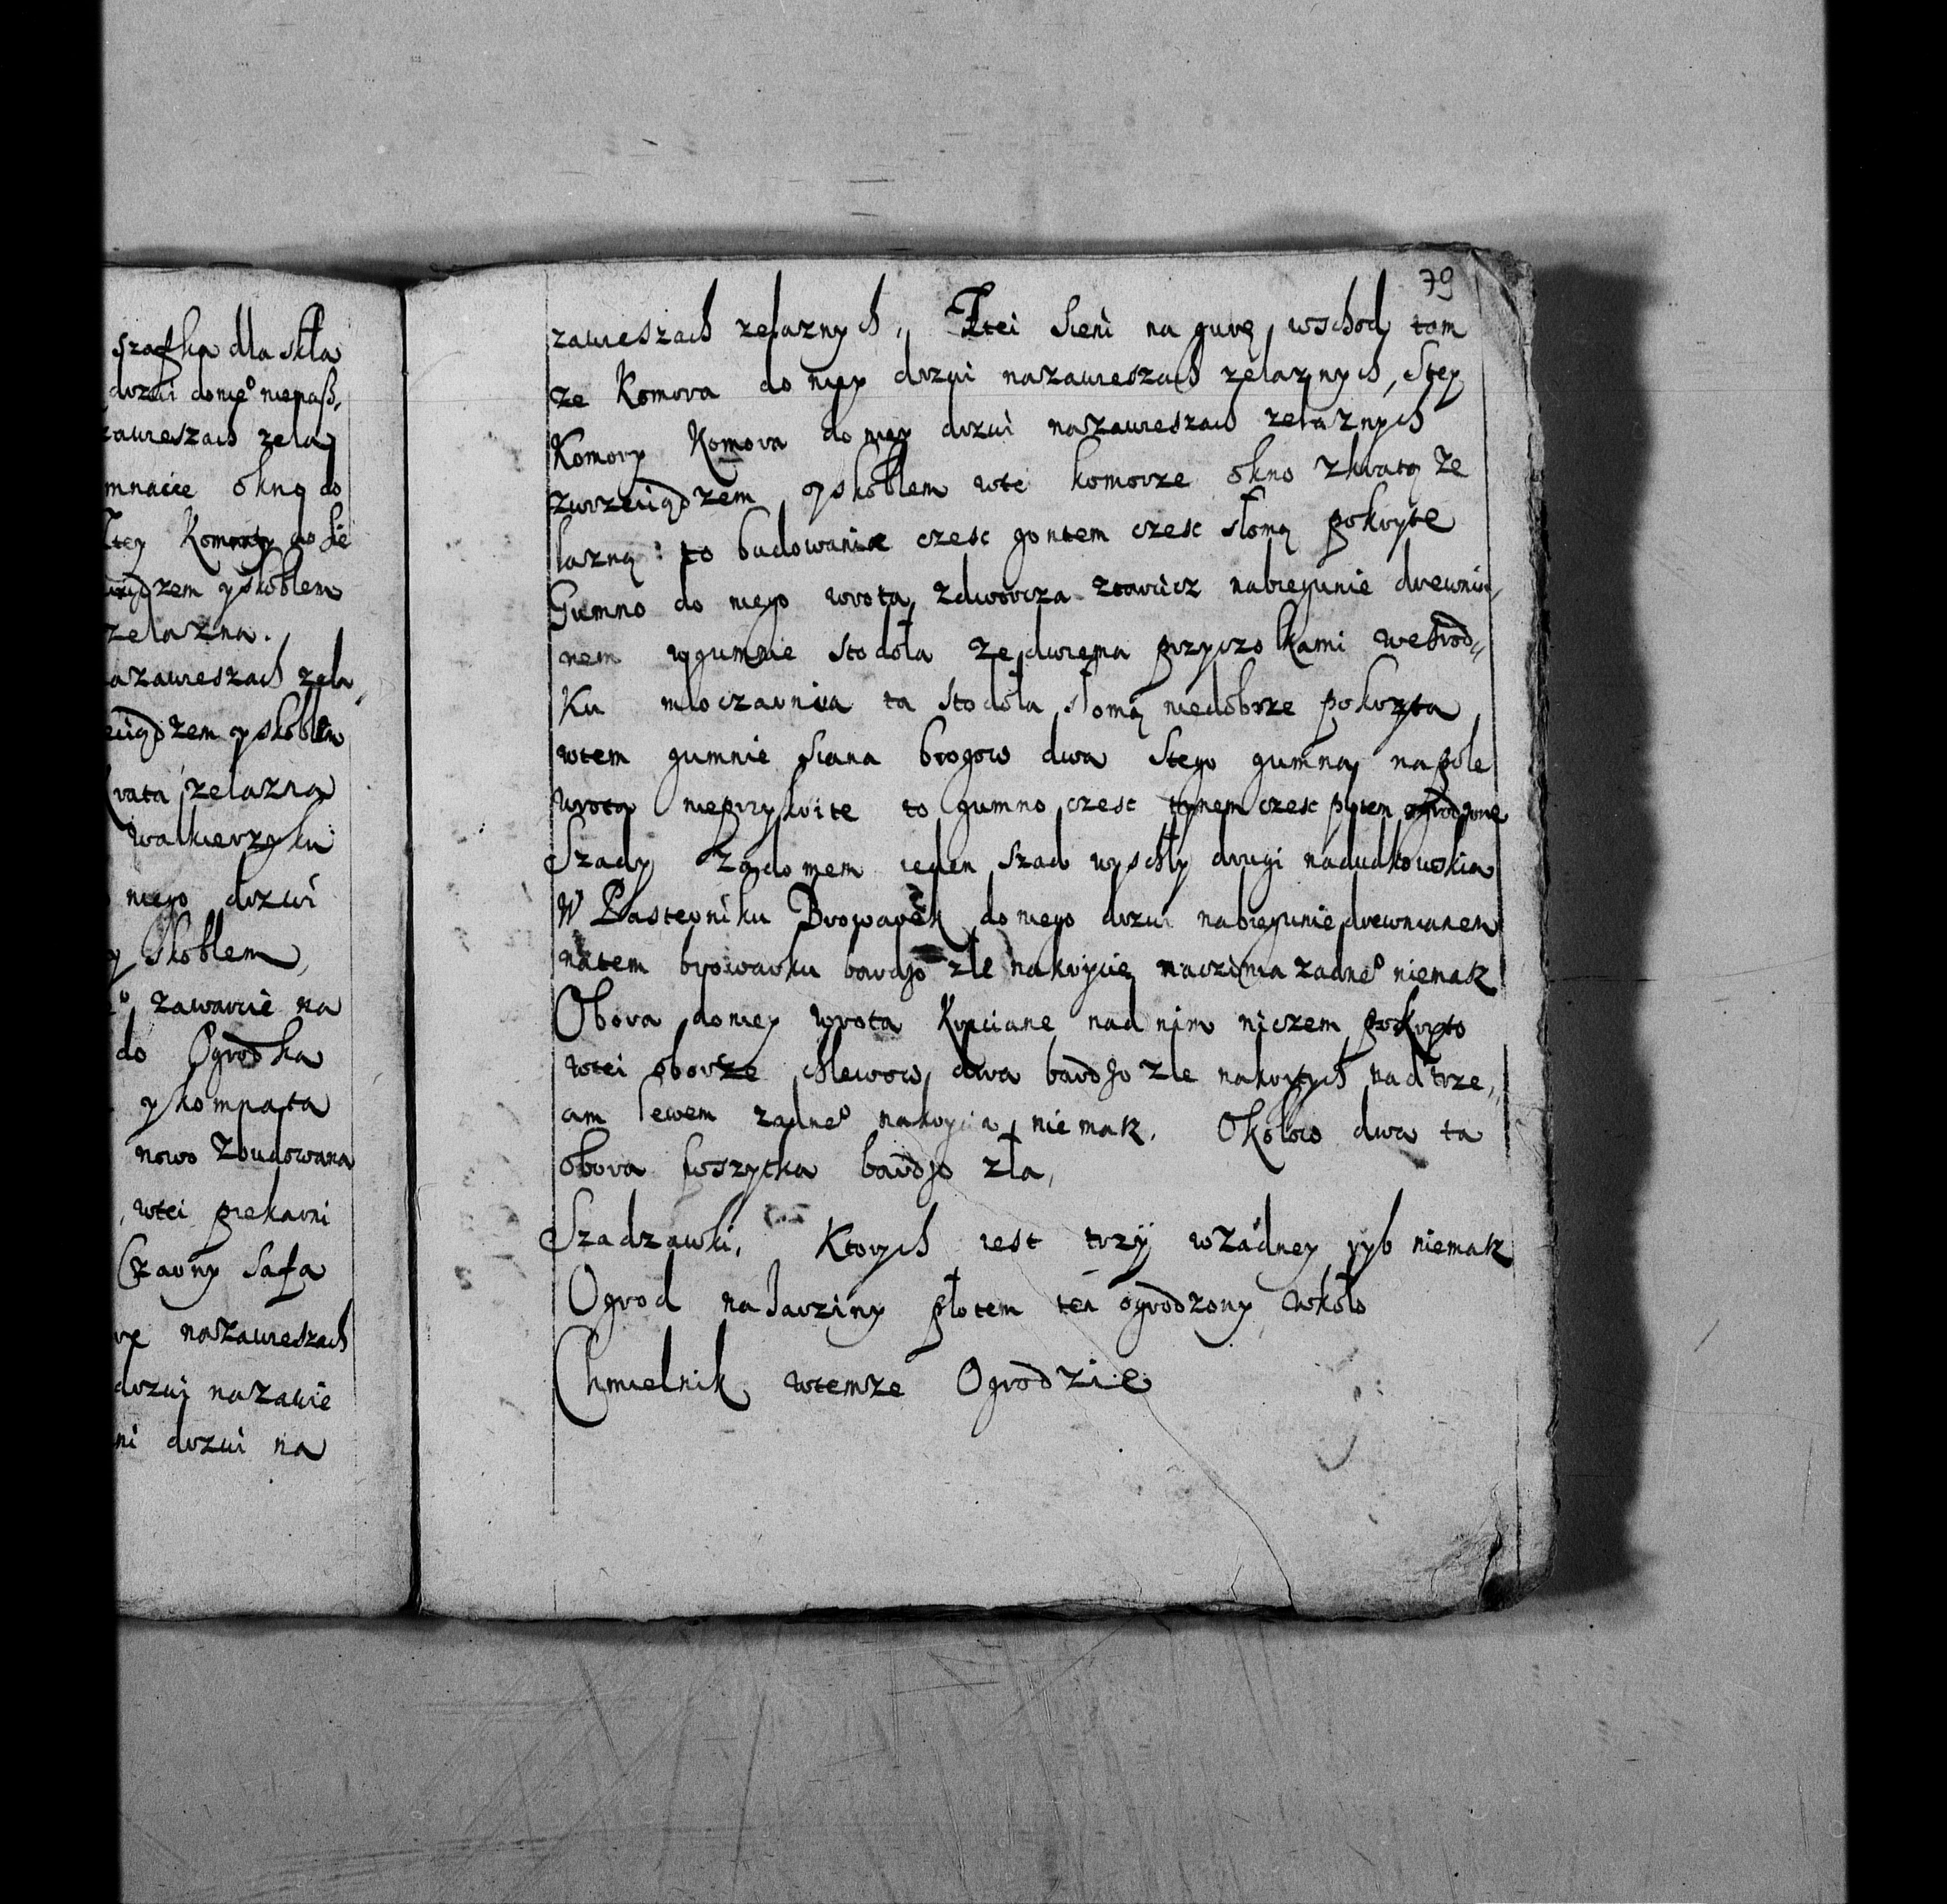 szafka dla skła
drzwi do nieº niemasz,
zawieszach zela
mnacie okno do
Stey Komory do sie
wiądzem y skoblem
zelazna.
nazawieszach zela
eciądzem y skoblem
krata zelazna
walkierzyku
niego drzwi
y skoblem,
zawarcie na
do Ogrodka
y kompasta
nowo zbudowana
wtei piekarni
Czarny safa
nazawieszach
drzwi nazawie
ni drzwi na
79
zawieszach zelaznych, Ztei sieni na gurę wschod tam
ze Komora do niey drzwi nazawieszach zelaznych, Stey
Komory Komora do niey drzwi nazawieszach zelaznych
zwrzeciądzem y skoblem wtei komorze okno zkratą ze
lazną: to budowanie czesc gontem czesc słomą pokryte
Gumno do niego wrota zdworcza ztarcicz nabiegunie drewnia,
nem wgumnie stodoła ze dwiema przyczolkami wesrod,
ku mloczarnia ta stodoła słomą niedobrze pokryta
wtem gumnie siana brogow dwa Stego gumna napole
wrota nieprzykrite to gumno czesc tynem czesc płotem ogrodzone
Szady zadomem ieden szad wyschły drugi nadudkowskim
W Pasterniku Browarek do niego drzwi nabiegunie drewnianem
natem browarku bardzo zle nakrycie naczinia zadneº niemasz
Obora do niey wrota Kryciane nad nim niczem pokryto
wtei oborze chlewow dwa bardzo zle nakrytych nad trze,
am lewem zadneº nakrycia niemasz. Okolow dwa ta
obora wszytka bardzo zła,
Szadzawki, Ktorych iest trzÿ wzadney ryb niemasz
Ogrod na Jarziny płotem ten ogrodzony wkoło
Chmielnik wtemze Ogrodzie